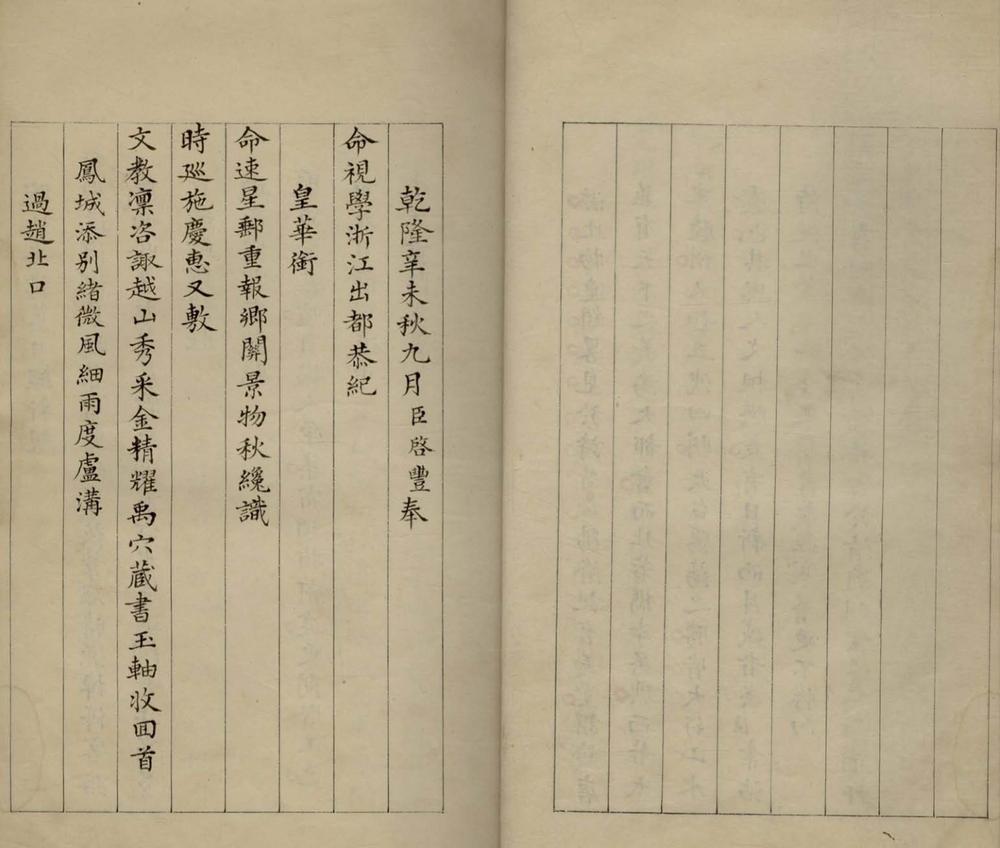 乾隆辛未秋九月臣啓豐奉
命視學浙江出都恭紀
皇華銜
命速星郵重報鄉關景物秋纔識
時廵施慶惠又敷
文教凛咨諏越山秀采金精耀禹穴藏書玉軸收回首
鳳城添别緒微風細雨度盧溝
過趙北口